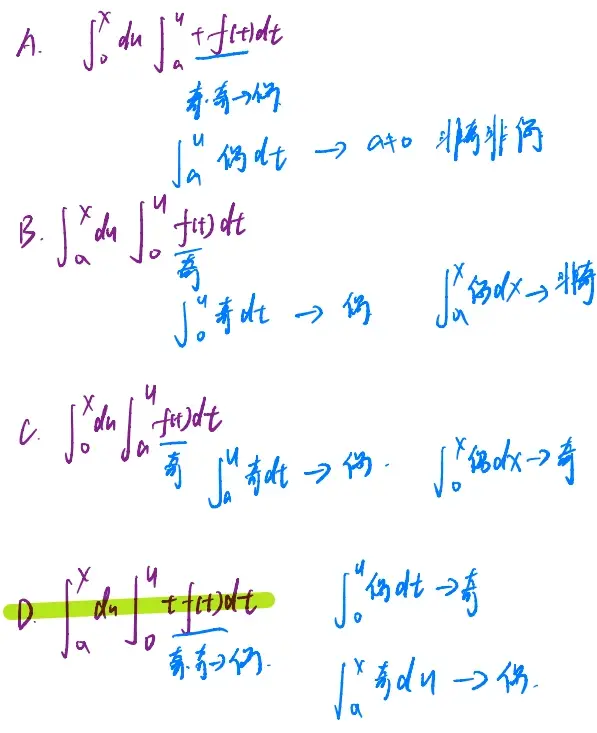 A. ∫₀ˣ du ∫ₐᵘ t f(t)dt
奇·奇→偶
∫ₐᵘ 偶dt → a≠0 非奇非偶
B. ∫ₐˣ du ∫₀ᵘ f(t)dt
奇
∫₀ᵘ 奇dt → 偶 ∫ₐˣ 偶dx → 非奇
C. ∫₀ˣ du ∫ₐᵘ f(t)dt
奇 ∫ₐᵘ 奇dt → 偶. ∫₀ˣ 偶dx → 奇
D. ∫ₐˣ du ∫₀ᵘ t f(t)dt ∫₀ᵘ 偶dt → 奇
奇·奇→偶. ∫ₐˣ 奇du → 偶.